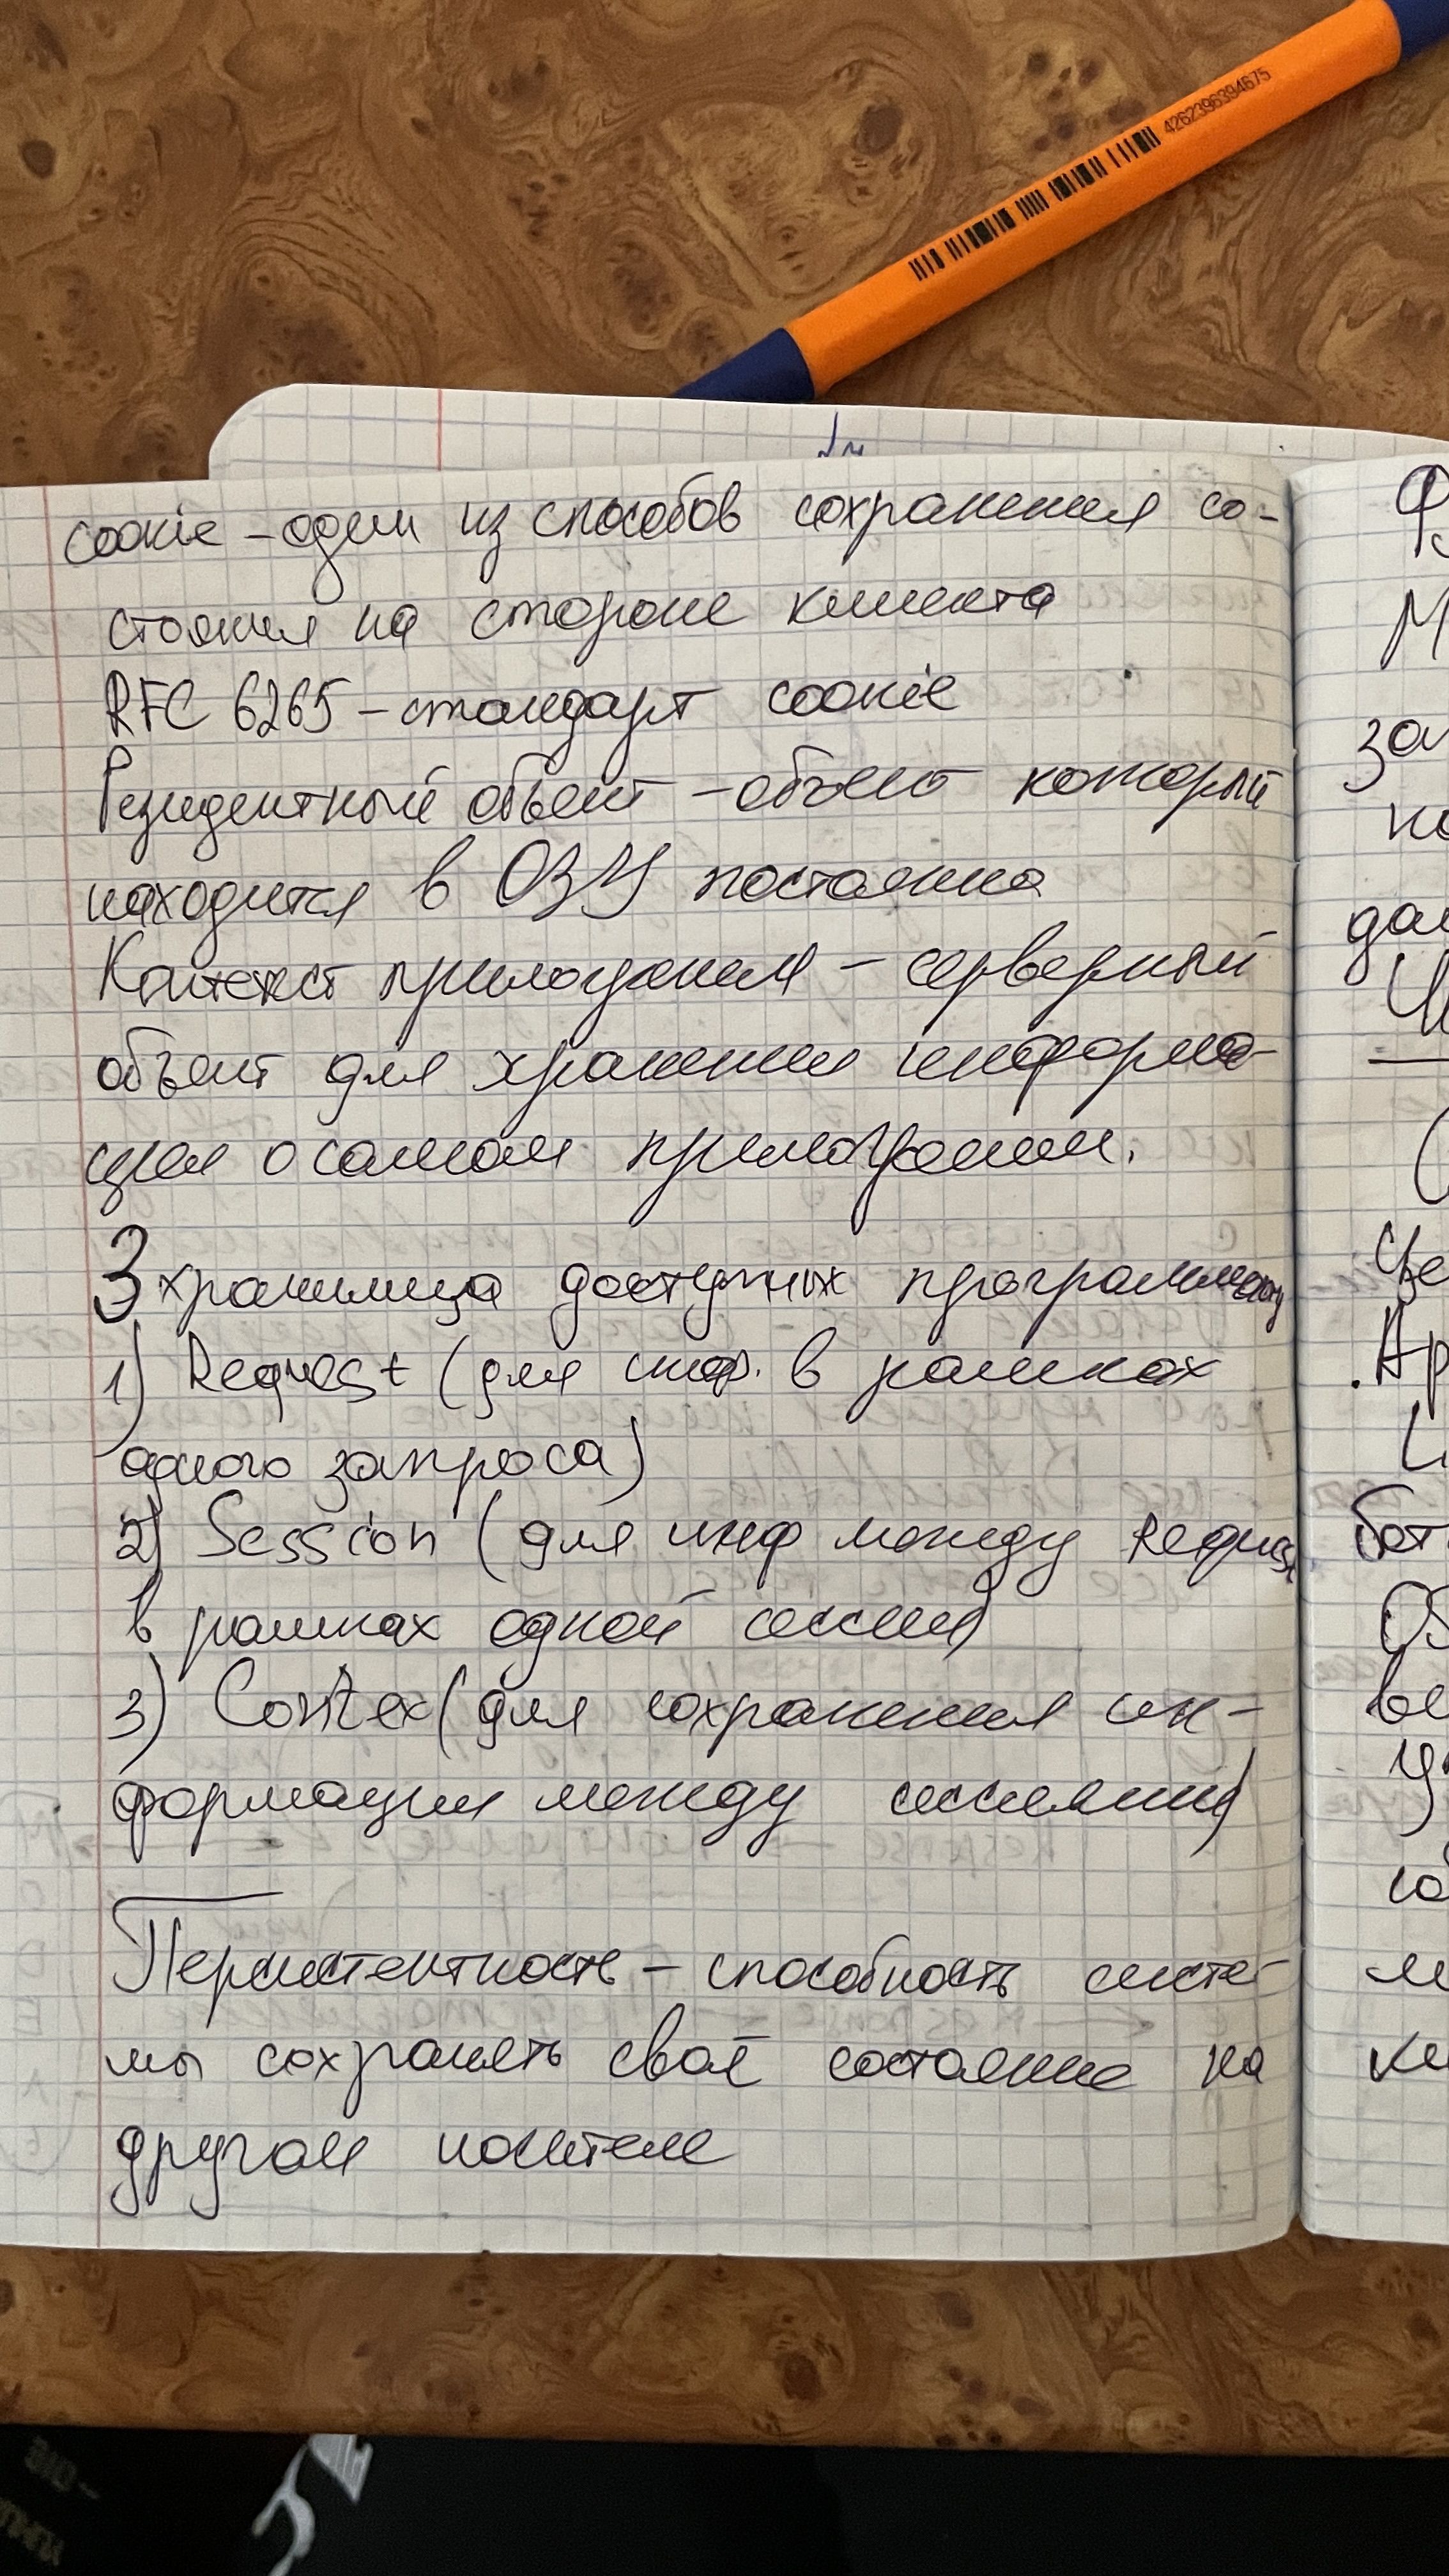 4262396394675
cookie – один из способов сохранения со-
стояния на стороне клиента
RFC 6265 – стандарт cookie
Резидентный объект – объект который
находится в ОЗУ постоянно
Контекст приложения – серверный
объект для хранения информа-
ции о самом приложении.
3 хранилища доступных программисту
1) Request (для инф. в рамках
одного запроса)
2) Session (для инф между Request
в рамках одной сессии)
3) Contex (для сохранения ин-
формации между сессиями)
Персистентность – способность систе-
мы сохранять своё состояние на
другом носителе